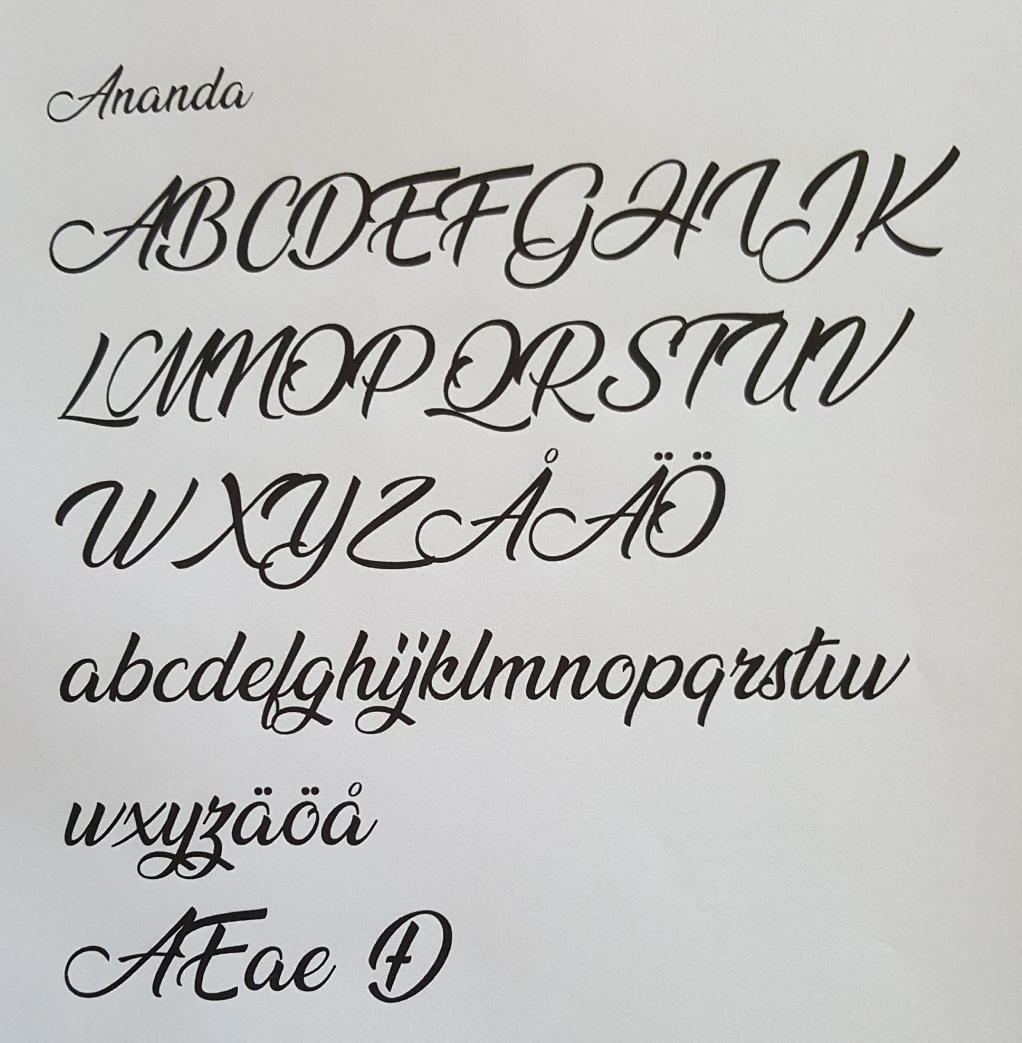 Ananda
ABCDEFGHIJK
LMNOPQRSTUV
WXYZÅÄÖ
abcdefghijklmnopqrstuv
wxyzäöå
AEae Đ